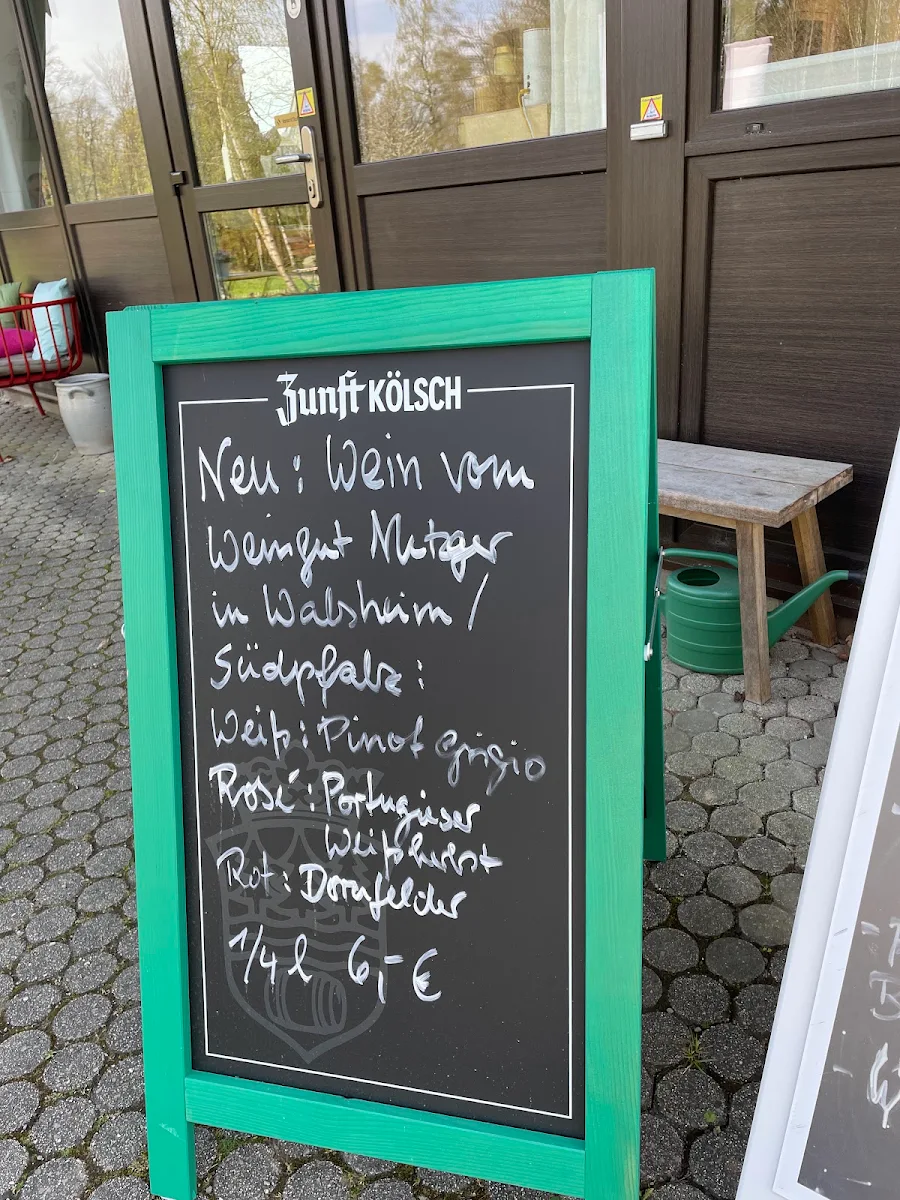 Zunft KÖLSCH
Neu: Wein vom
Weingut Metzger
in Walsheim /
Südpfalz:
Weiß: Pinot Grigio
Rosé: Portugieser
Weißherbst
Rot: Dornfelder
1/4 l 6,- €